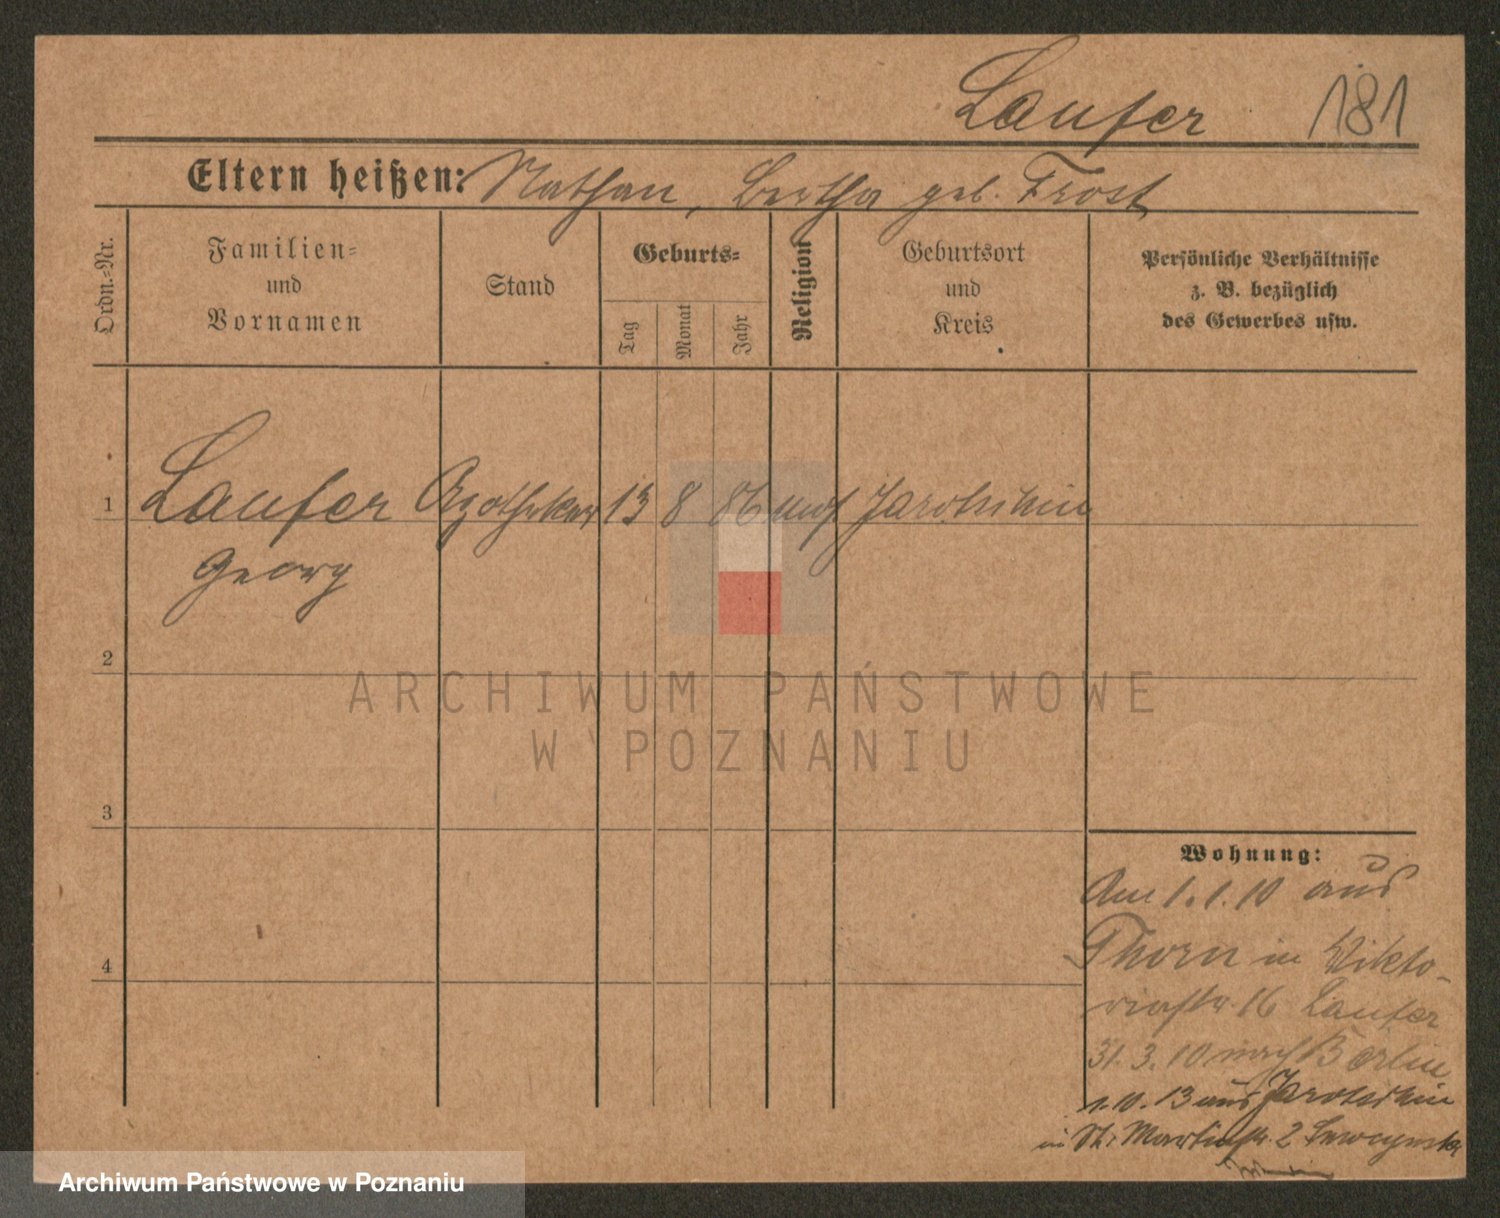 Laufer 181
Eltern heißen: Nathan, Bertha geb. Frost
Ordn.-Nr.
Familien-
und
Vornamen
Stand
Geburts-
Tag
Monat
Jahr
Religion
Geburtsort
und
Kreis
Persönliche Verhältnisse
z. B. bezüglich
des Gewerbes usw.
1 Laufer Apotheker 13 8 86 mos Jarotschin
Georg
2
3
4
Wohnung:
Am 1.1.10 aus
Thorn in Vikto-
riastr. 16 Laufer
31.3.10 nach Berlin
1.10.13 aus Jarotschin
in St. Martinstr. 2
ARCHIWUM PAŃSTWOWE
W POZNANIU
Archiwum Państwowe w Poznaniu